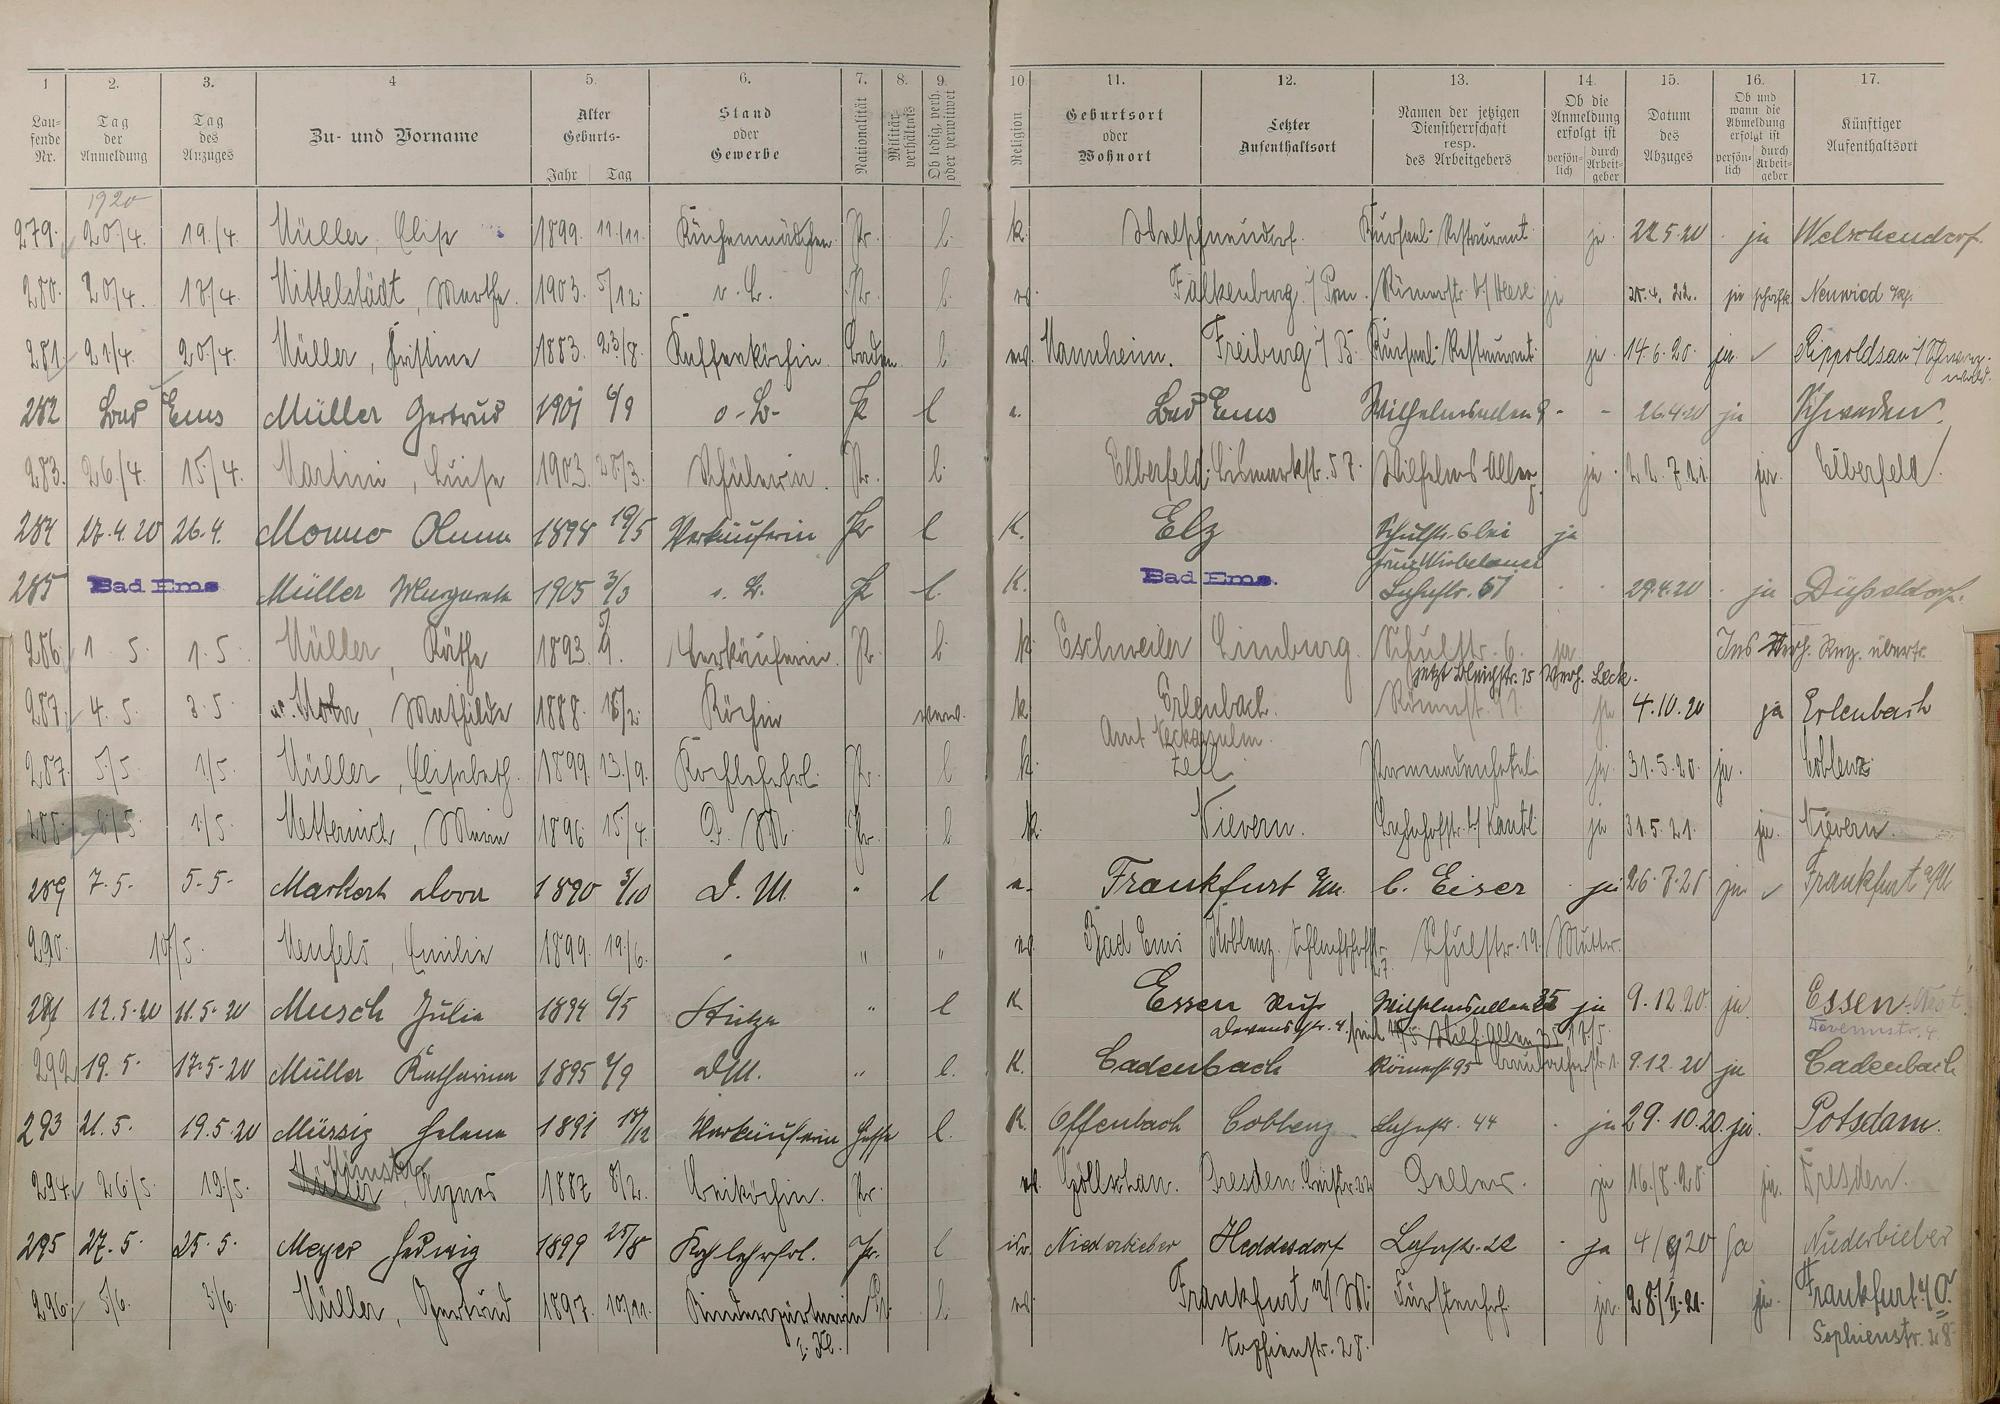 1 2. 3. 4 5. 6. 7. 8. 9. 10 11. 12. 13. 14. 15. 16. 17.
Lau-fende Nr. Tag der Anmeldung Tag des Anzuges Zu- und Vorname Alter Geburts- Jahr Tag Stand oder Gewerbe Nationalität Militär-verhältnis Ob ledig, verh. oder verwitwet Religion Geburtsort oder Wohnort Letzter Aufenthaltsort Namen der jetzigen Dienstherrschaft resp. des Arbeitgebers Ob die Anmeldung erfolgt ist persön-lich durch Arbeit-geber Datum des Abzuges Ob und wann die Abmeldung erfolgt ist persön-lich durch Arbeit-geber Künftiger Aufenthaltsort
1920
279. 20/4. 19./4. Müller, Elise 1899. 11./11. Küchenmädchen. Pr. l. k. Welschneudorf. Kursaal-Restaurant ja. 22.5.20 ja Welschendorf.
280. 20/4. 18/4. Mittelstädt, Marthe. 1903. 5/12. o. B. Pr. l. ev. Falkenburg i/Pom. Römerstr. b/Heese ja 25.4.22. ja schriftl. Neuwied
281. 21/4. 20/4. Müller, Christine 1883. 23/8. Kaffeeköchin. Baden. l. ev. Mannheim. Freiburg i/B. Kursaal-Restaurant ja. 14.6.20. ja. Rippoldsau i/Schwarz-wald.
282 Bad Ems Müller Gertrud 1901 6/9 o-B- Pr l e. Bad Ems Wilhelmsallee 9 - - 26.4.20 ja Schweden.
283. 26/4. 15./4. Martini, Luise 1903. 28/3. Schülerin. Pr. l. Elberfeld. Bismarkstr. 57. Wilhelms Allee ja. 22.7.21. ja. Elberfeld.
284 27.4.20 26.4. Monno Anna 1898 19/5 Verkäuferin Pr l K. Elz Schulstr. 6 bei ja
285 Bad Ems Müller Margareta 1905 3/3 o. B. Pr l. K. Bad Ems. Lahnstr. 61 29.4.20 ja Düsseldorf.
286. 1. 5. 1.5. Müller, Käthe 1893. Verkäuferin. Pr. l. k. Eschweiler Limburg. Schulstr. 6. ja Ins Verh. Reg. übertr.
jetzt Bleichstr. 15 Verh. Leck.
287. 4. 5. 3.5. Mathilde 1888. 18/2. Köchin verw. k. Erlenbach. Römerstr. 91 ja 4.10.20 ja Erlenbach
Amt Neckarsulm.
287. 5/5. 1/5. Müller, Elisabeth. 1899. 13./9. Kochlehrfrl. Pr. l k. Zell ja. 31.5.20. ja. Coblenz
288. 6/5. 1/5. Metternich, Maria 1896. 15/4. D. M. Pr. l k. Nievern. Bahnhofstr. b/Kautl ja 31.5.21. ja. Nievern.
289 7.5. 5.5- Markert Dora 1890 3/10 D. M. " l e. Frankfurt a/M. C. Eiser ja 26.7.21 ja Frankfurt a/M
290. 10/5. Neufeld, Emilie 1899. 19./6. - " " ev. Bad Ems Koblenz. Schulstr. 19. Mutter.
291 12.5.20 11.5.20 Meusch Julia 1894 6/5 Stütze " l K Essen Ruhr Wilhelmsallee 35 ja 9.12.20 ja. Essen-West.
292 19. 5. 17.5.20 Müller Katharina 1895 2/9 DM. " l. K. Cadenbach Römerstr. 95 9.12.20 ja Cadenbach
293 21. 5. 19.5.20 Müssig Helene 1891 17/12 Verkäuferin Hesse l. K. Offenbach Coblenz Lahnstr. 44 ja 29.10.20. ja. Potsdam.
294. 26/5. 19/5. Müller Münster, Agnes 1887 8/2. Beiköchin. Pr. ev. Göllschau. Dresden ja 16/8.20 ja. Dresden.
295 27.5. 25.5. Meyer Hedwig 1899 25/8 Kochlehrfrl. Pr. l ev. Niederbieber Heddesdorf Lahnstr. 22 ja 4/9 20 Ja Niederbieber
296. 5/6. 3/6. Müller, Gertrud 1897. 10/11. Kindergärtnerin Pr. l. ev. Frankfurt a/M. Fürstenhof. ja. 28/ 21. ja. Frankfurt a O.
I. Kl. Sophienstr. 28. Sophienstr. 28